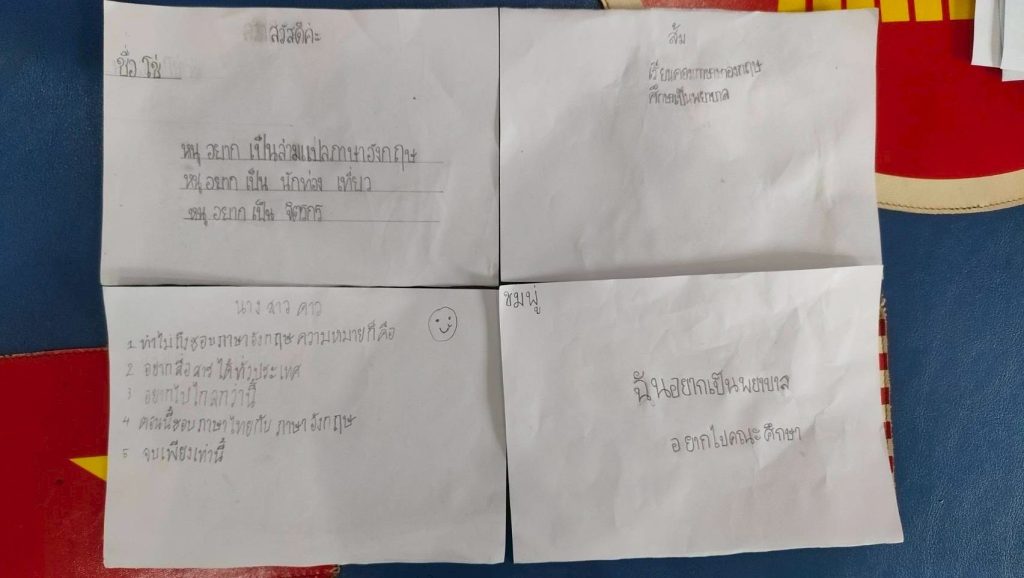 สวัสดีค่ะ
ชื่อ โช่
หนุ อยาก เป็นล่ามแปลภาษาอังกฤษ
หนุ อยาก เป็น นักท่อง เทียว
หนุ อยาก เป็น จิตรกร
ส้ม
ศึกษาเป็นพยาบาล
นาง สาว ดาว
1 ทำไมถึงชอบภาษาอังกฤษ ความหมายก็คือ
2 อยากสื่อสาร ได้ทั่วประเทศ
3 อยากไปไกลกว่านี้
4 ตอนนี้ชอบภาษาไทยกับ ภาษาอังกฤษ
5 จบเพียงเท่านี้
ชมพู่
ฉันอยากเป็นพยาบาล
อยากไปคณะศึกษา